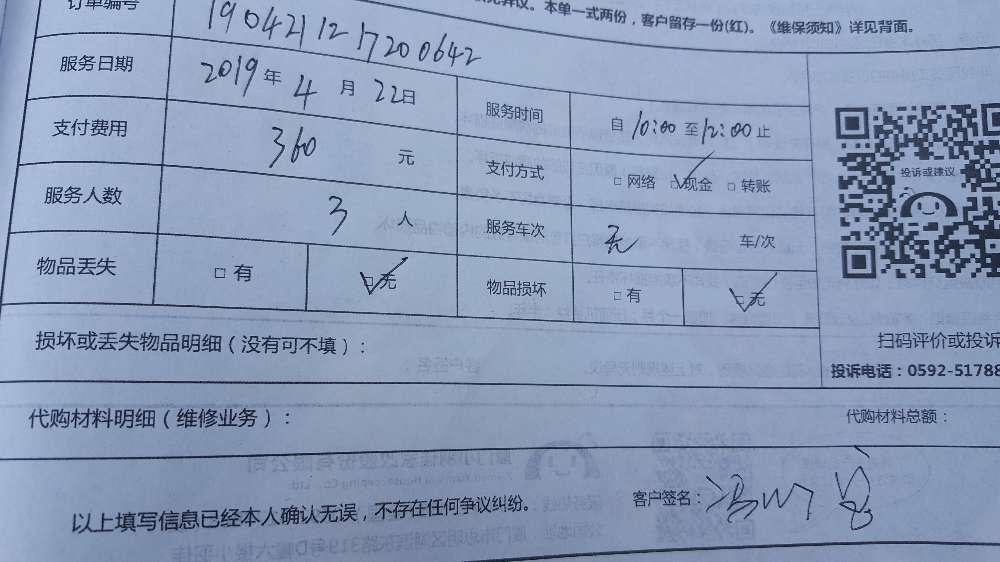 无异议。本单一式两份，客户留存一份(红)。《维保须知》详见背面。
订单编号 1904211217200642
服务日期 2019年4月22日 服务时间 自10:00至12:00止
支付费用 360元 支付方式 □网络 ☑现金 □转账
服务人数 3人 服务车次 无 车/次
物品丢失 □有 ☑无 物品损坏 □有 ☑无
投诉或建议
扫码评价或投诉
投诉电话：0592-51788
损坏或丢失物品明细（没有可不填）：
代购材料明细（维修业务）： 代购材料总额：
以上填写信息已经本人确认无误，不存在任何争议纠纷。 客户签名：